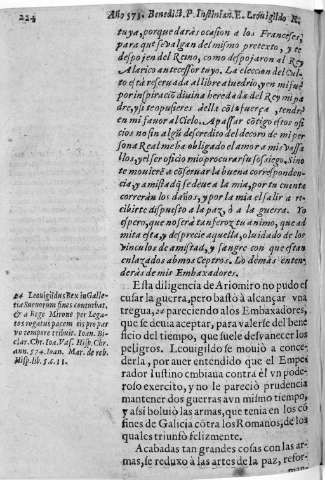 224 Año 573. Benedi.I.P. Iustiniañ.E. Leouigildo R.
tuya, porque darás ocasion a los Franceses,
para que se valgan del mismo pretexto, y te
despojen del Reino, como despojaron al Rey
Alarico antecessor tuyo. La eleccion del Cul-
to está reseruada al libre aluedrio, y en mi fue
por inspiraciõ diuina heredada del Rey mi pa-
dre, y si te opusieres a ella cõ la fuerça, tendré
en mi fauor al Cielo. A passar cõtigo estos ofi-
cios no sin algũ descredito del decoro de mi per-
sona Real me ha obligado el amor a mis Vassa
llos, y el ser oficio mio procurar su sosiego. Sino
te mouiere a cõseruar la buena corresponden-
cia, y amistad q̃ se deue a la mia, por tu cuenta
correrán los daños, y por la mia el salir a re-
cibirte dispuesto a la paz, ò a la guerra. Yo
espero, que no será tan feroz tu animo, que ad
mita esta, y desprecie aquella, oluidado de los
vinculos de amistad, y sangre con que estan
enlazados ambos Ceptros. Lo demás enten-
derás de mis Embaxadores.
Esta diligencia de Ariomiro no pudo es
cusar la guerra, pero bastò à alcançar vna
tregua, 24 pareciendo a los Embaxadores,
que se deuia aceptar, para valerse del bene
ficio del tiempo, que suele desvanecer los
peligros. Leouigildo se mouiò a conce-
derla, por auer entendido que el Empe
rador Iustino embiaua contra el vn pode-
roso exercito, y no le pareciò prudencia
mantener dos guerras a vn mismo tiempo,
y assi boluiò las armas, que tenia en los cõ
fines de Galicia cõtra los Romanos, de los
quales triunfò felizmente.
Acabadas tan grandes cosas con las ar-
mas, se reduxo à las artes de la paz, refor-
man-
24 Leouigildus Rex in Galle-
tia Sueuorum fines conturbat,
& a Rege Mirone per Lega-
tos rogatus pacem eis pro par
vo tempore tribuit. Ioan. Bi-
clar. Chr. Ioa. Vas. Hisp. Chr.
ann. 574. Ioan. Mar. de reb.
Hisp. lib. 5. c. 11.